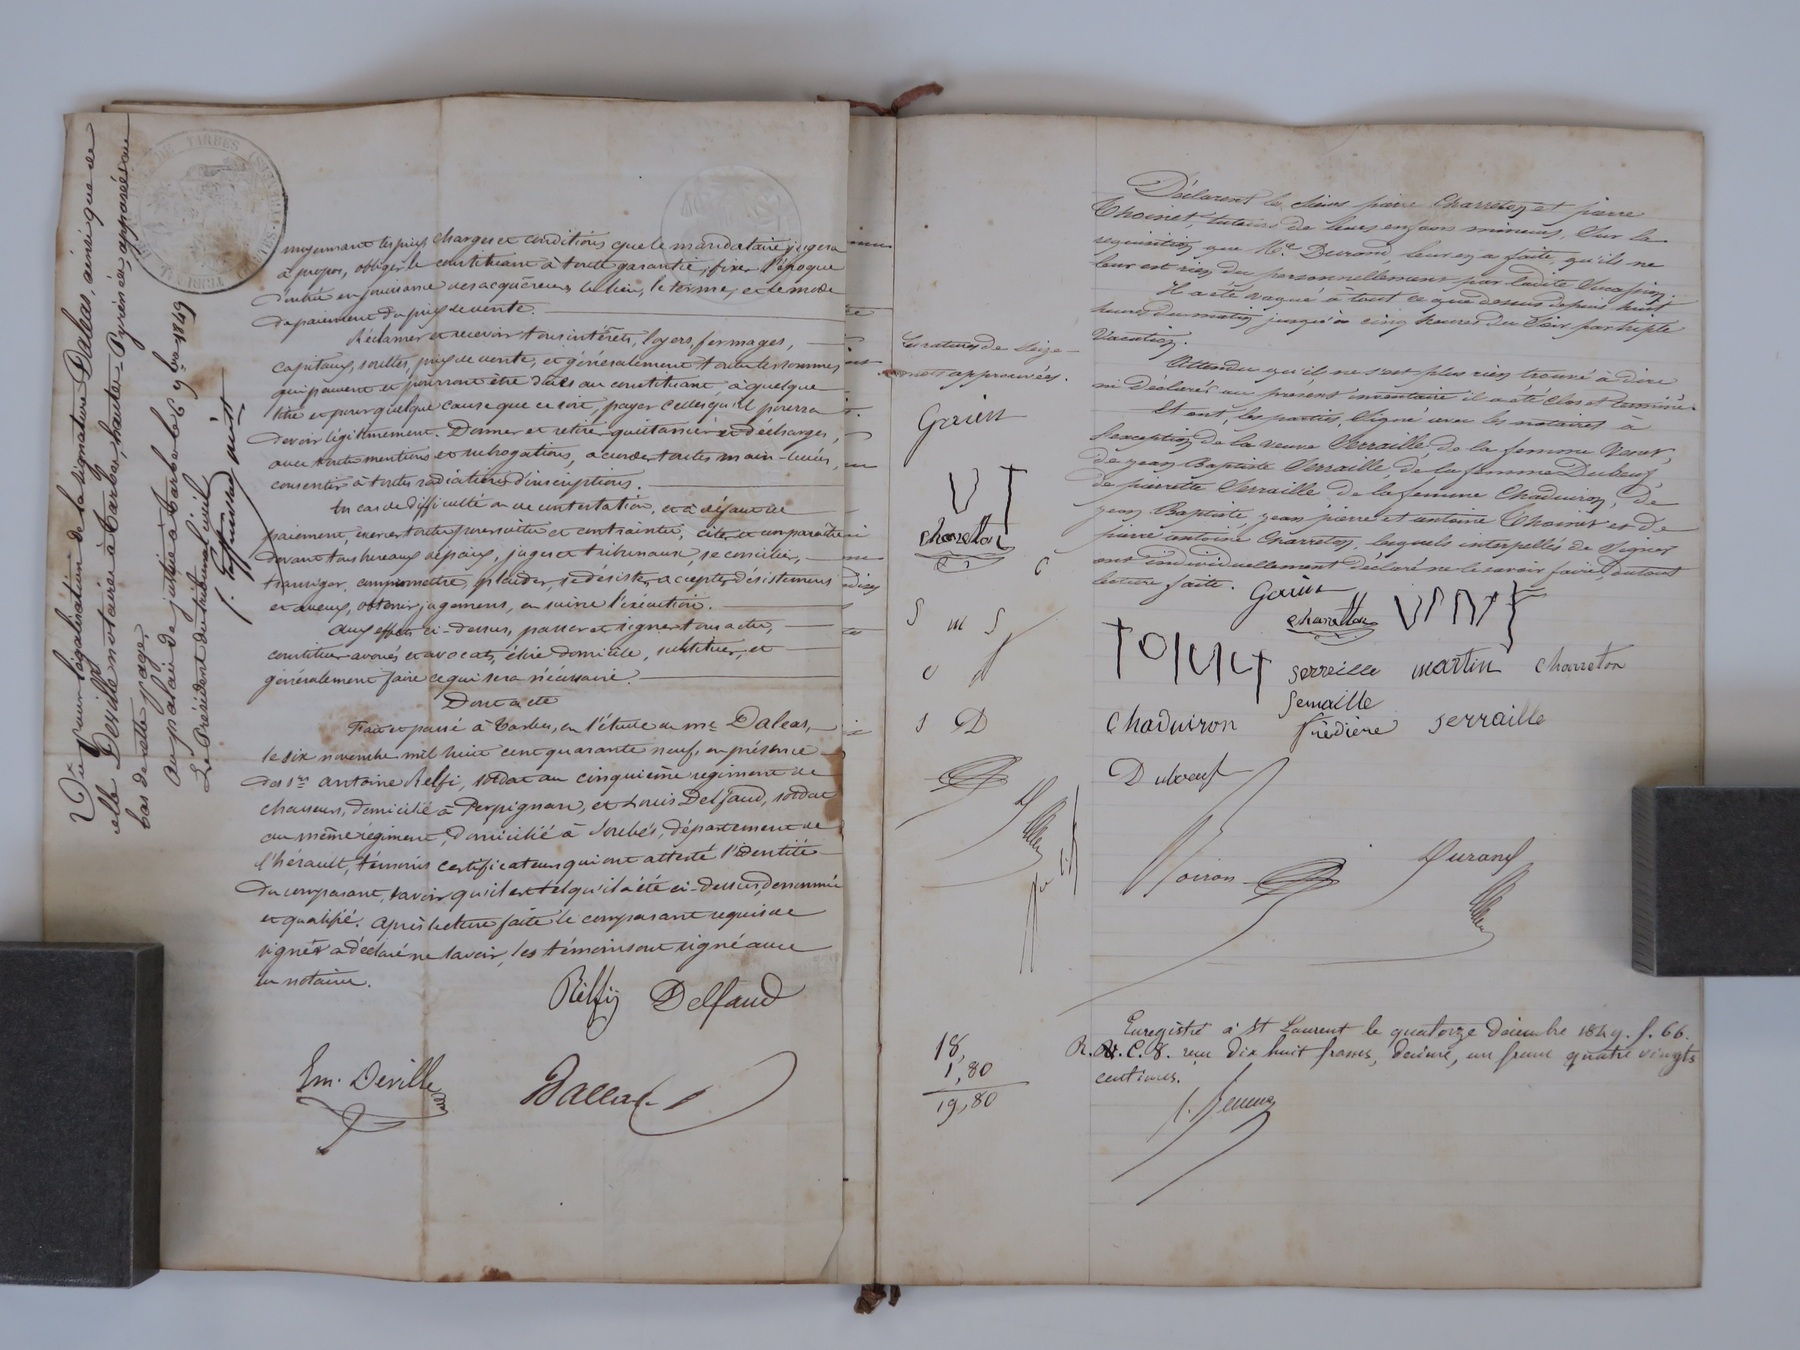 Vu pour légalisation de la signature Daleas, ainsi que de
celle Deville notaire à Tarbes, hautes Pyrénées, apposées au
bas de cette page.
Au palais de justice à Tarbes le 6 9bre 1849
Le Président du tribunal civil
TRIBUNAL DE TARBES
moyennant les prix, charges et conditions que le mandataire jugera
à propos, obliger le constituant à toute garantie, fixer l'époque
d'entrée en jouissance des acquéreurs, le lieu, le terme, et le mode
de paiement du prix de vente.
Réclamer et recevoir tous intérêts, loyers, fermages,
capitaux, soultes, prix de vente, et généralement toutes les sommes
qui peuvent et pourront être dues au constituant à quelque
titre et pour quelque cause que ce soit, payer celles qu'il pourra
devoir légitimement. Donner et retirer quittances et décharges,
avec toutes mentions et subrogations, accorder toutes main-levées,
consentir à toutes radiations d'inscriptions.
En cas de difficulté ou de contestation, et à défaut de
paiement, exercer toute poursuite et contrainte, citer et comparaître
devant tous bureaux de paix, juges et tribunaux, se concilier,
transiger, compromettre, plaider, se désister, accepter désistemens
et aveux, obtenir jugemens, en suivre l'exécution.
Aux effets ci-dessus, passer et signer tous actes,
constituer avoués et avocats, élire domicile, substituer, et
généralement faire ce qui sera nécessaire.
Dont acte
Fait et passé à Tarbes, en l'étude de me Daleas,
le six novembre mil huit cent quarante neuf, en présence
des srs Antoine Relfi, soldat au cinquième régiment de
chasseurs, domicilié à Perpignan, et Louis Delfaud, soldat
au même régiment, domicilié à Soubés, département de
l'hérault, témoins certificateurs qui ont attesté l'identité
du comparant, savoir qu'il est tel qu'il a été ci-dessus dénommé
et qualifié. Après lecture faite le comparant requis de
signer a déclaré ne savoir, les témoins ont signé avec
le notaire.
Relfij Delfaud
Em. Deville
Daleas
ratures de seize
mots approuvées.
Gouin
V T
Charetton
c
S m S
S D
18,
1,80
19,80
Déclarent les sieurs pierre Charreton et pierre
Thoinet, tuteurs de leurs enfans mineurs, Sur la
requisition que Me Durand, leur en a faite, qu'ils ne
leur est rien du personnellement par ladite succession.
Il a été vaqué à tout ce que dessus depuis huit
heures du matin jusqu'à cinq heures du Soir par triple
vacation.
Attendu qu'il ne s'est plus rien trouvé à dire
ni déclarer au présent inventaire il a été clos et terminé.
Et ont, les parties, signé avec les notaires à
l'exception de la veuve Serraille, de la femme
de jean Baptiste Serraille, de la femme Duboeuf,
de pierrette Serraille, de la femme Chaduiron, de
jean Baptiste, jean pierre et antoine Thoinet et de
pierre antoine Charreton, lesquels interpellés de Signer
ont individuellement déclaré ne le savoir faire, autant
lecture faite. Gouin
Charetton
serreille martin Charreton
Serraille
Chaduiron frédière serraille
Duboeuf
Voiron Durand
Enregistré à St Laurent le quatorze décembre 1849. f. 66.
R. V. C. 8. reçu dix huit francs, décime, un franc quatre vingts
centimes.